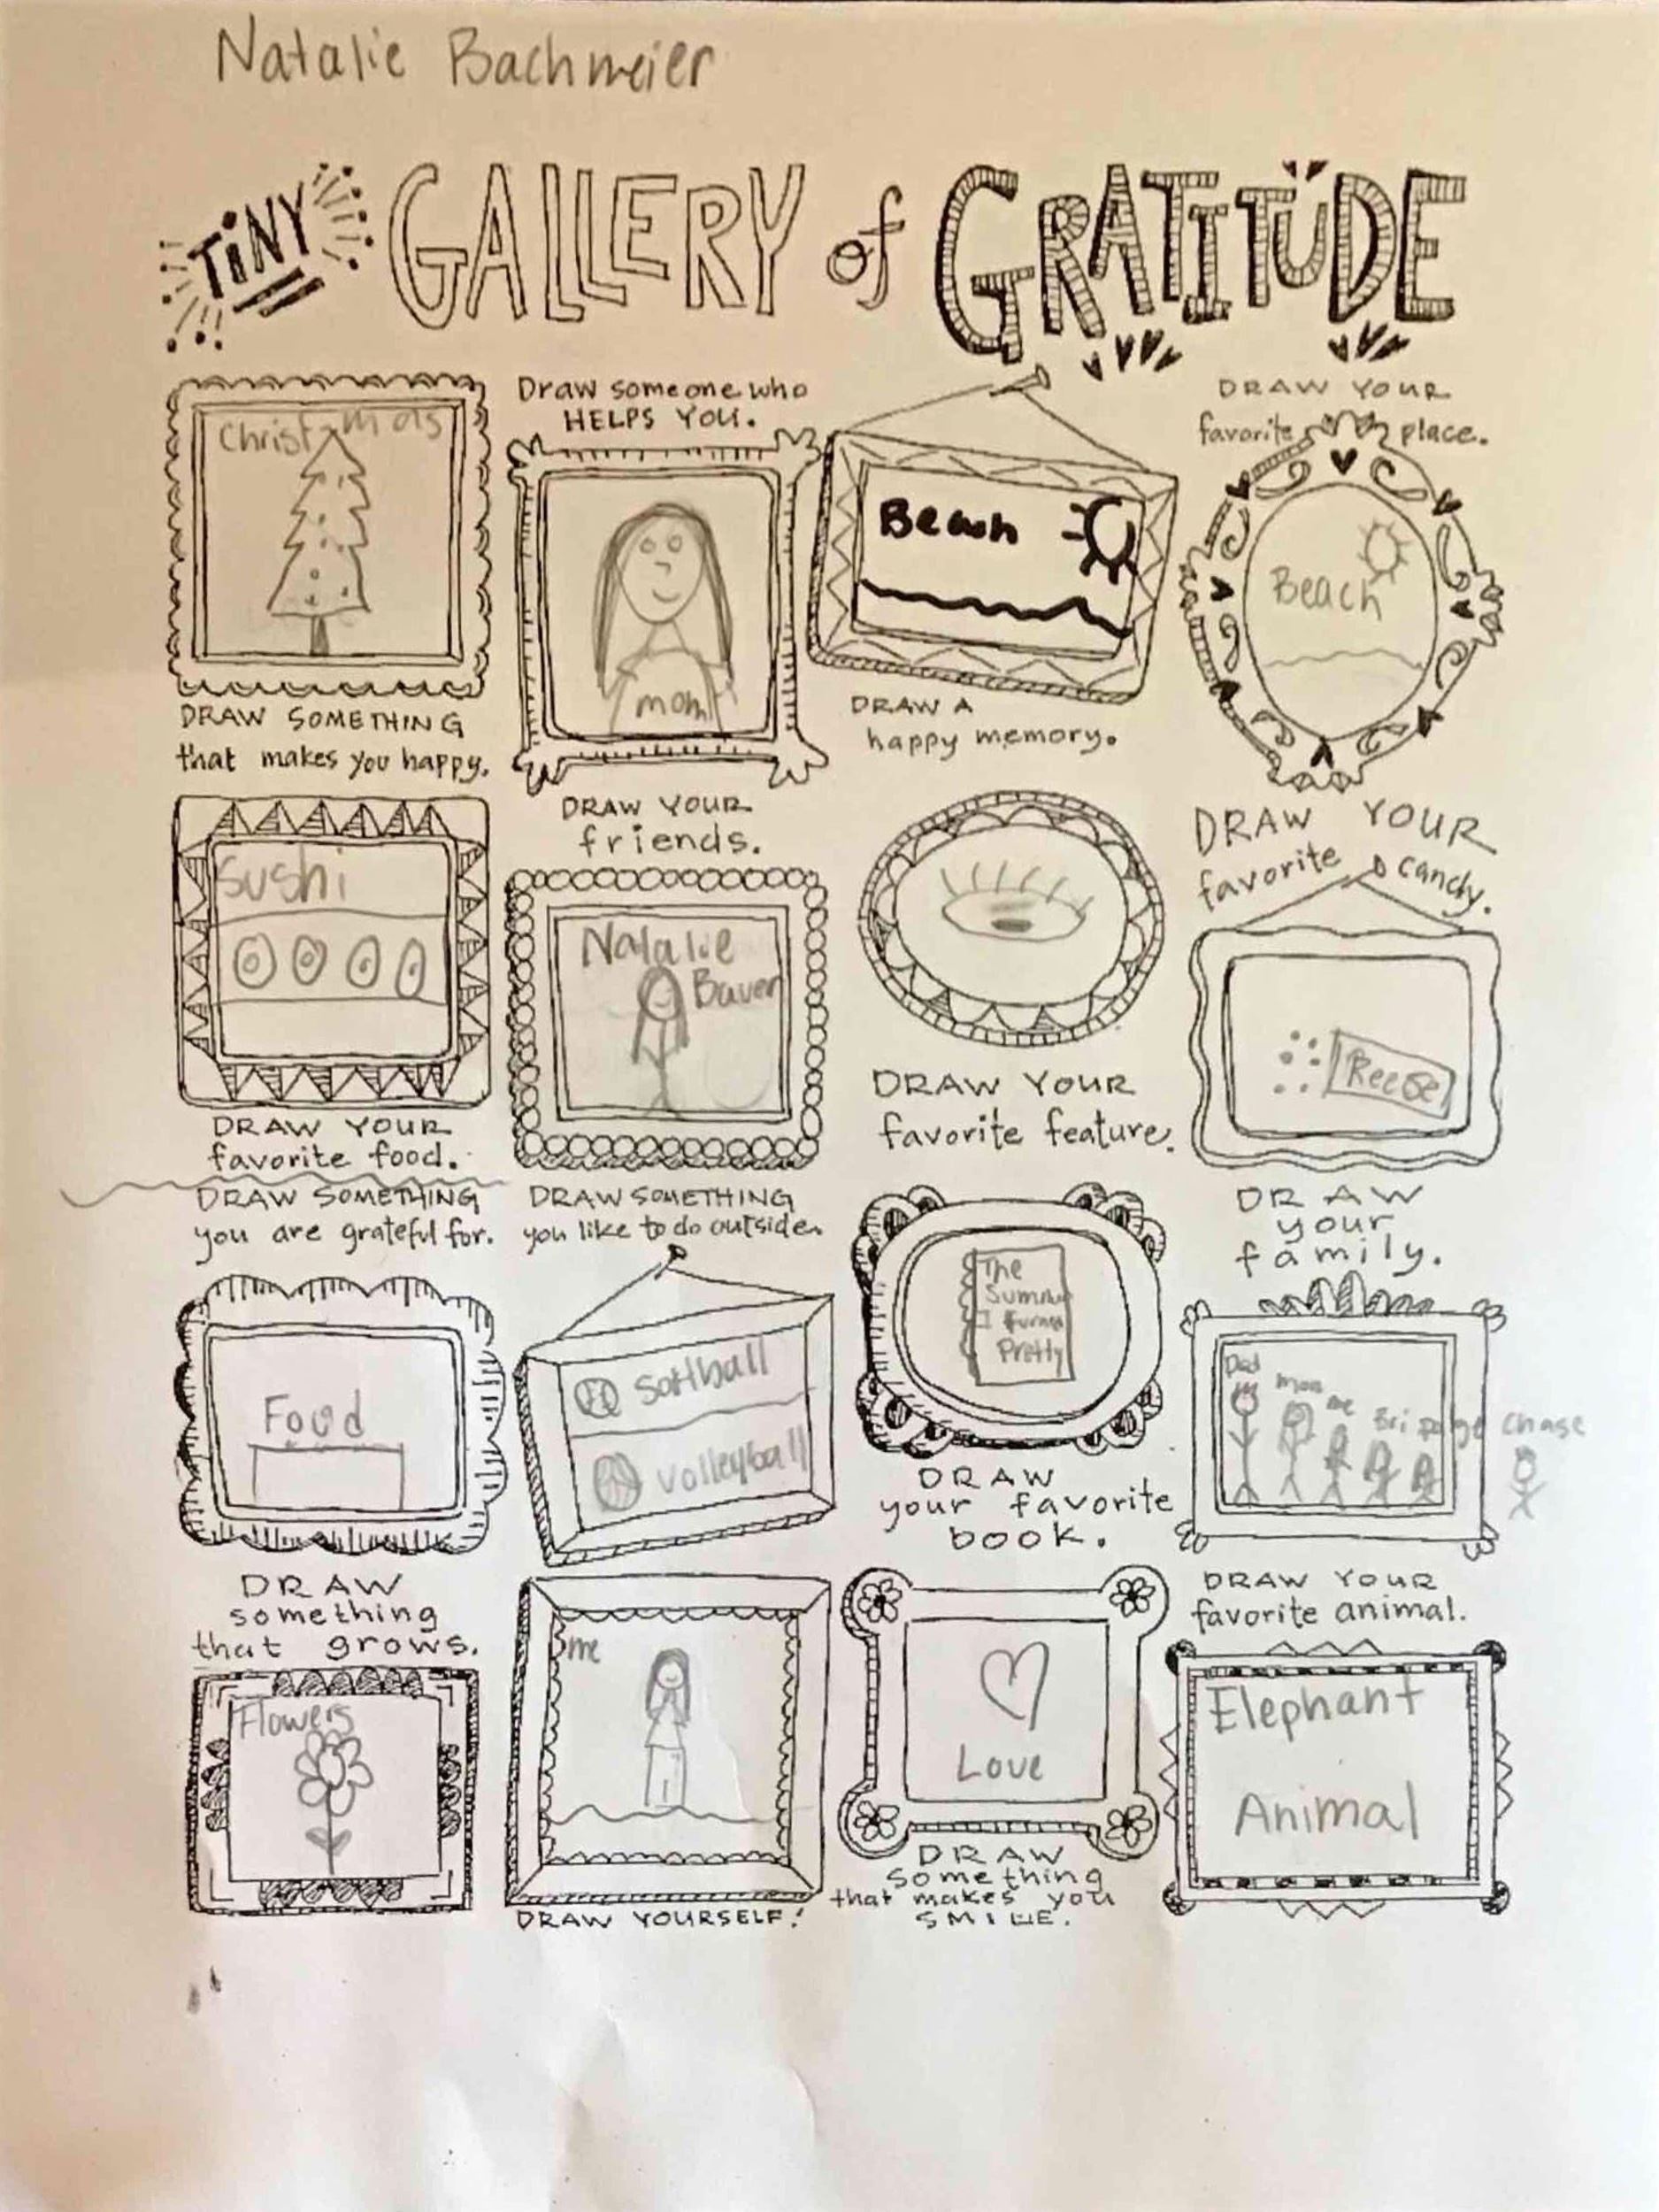 Natalie Bachmeier
TiNY GALLERY of GRATITUDE
Christmas
DRAW SOMETHING
that makes you happy.
Draw someone who
HELPS YOU.
mom
Beach
DRAW A
happy memory.
DRAW YOUR
favorite place.
Beach
Sushi
DRAW YOUR
favorite food.
DRAW YOUR
friends.
Natalie
Bauer
DRAW YOUR
favorite feature.
DRAW YOUR
favorite candy.
Reese
DRAW SOMETHING
you are grateful for.
Food
DRAW SOMETHING
you like to do outside.
Softball
Volleyball
The
Summer
I turned
Pretty
DRAW
your favorite
book.
DRAW
your
family.
Dad
mom
me
Bri
Chase
DRAW
something
that grows.
Flowers
me
DRAW YOURSELF!
Love
DRAW
something
that makes you
SMILE.
DRAW YOUR
favorite animal.
Elephant
Animal